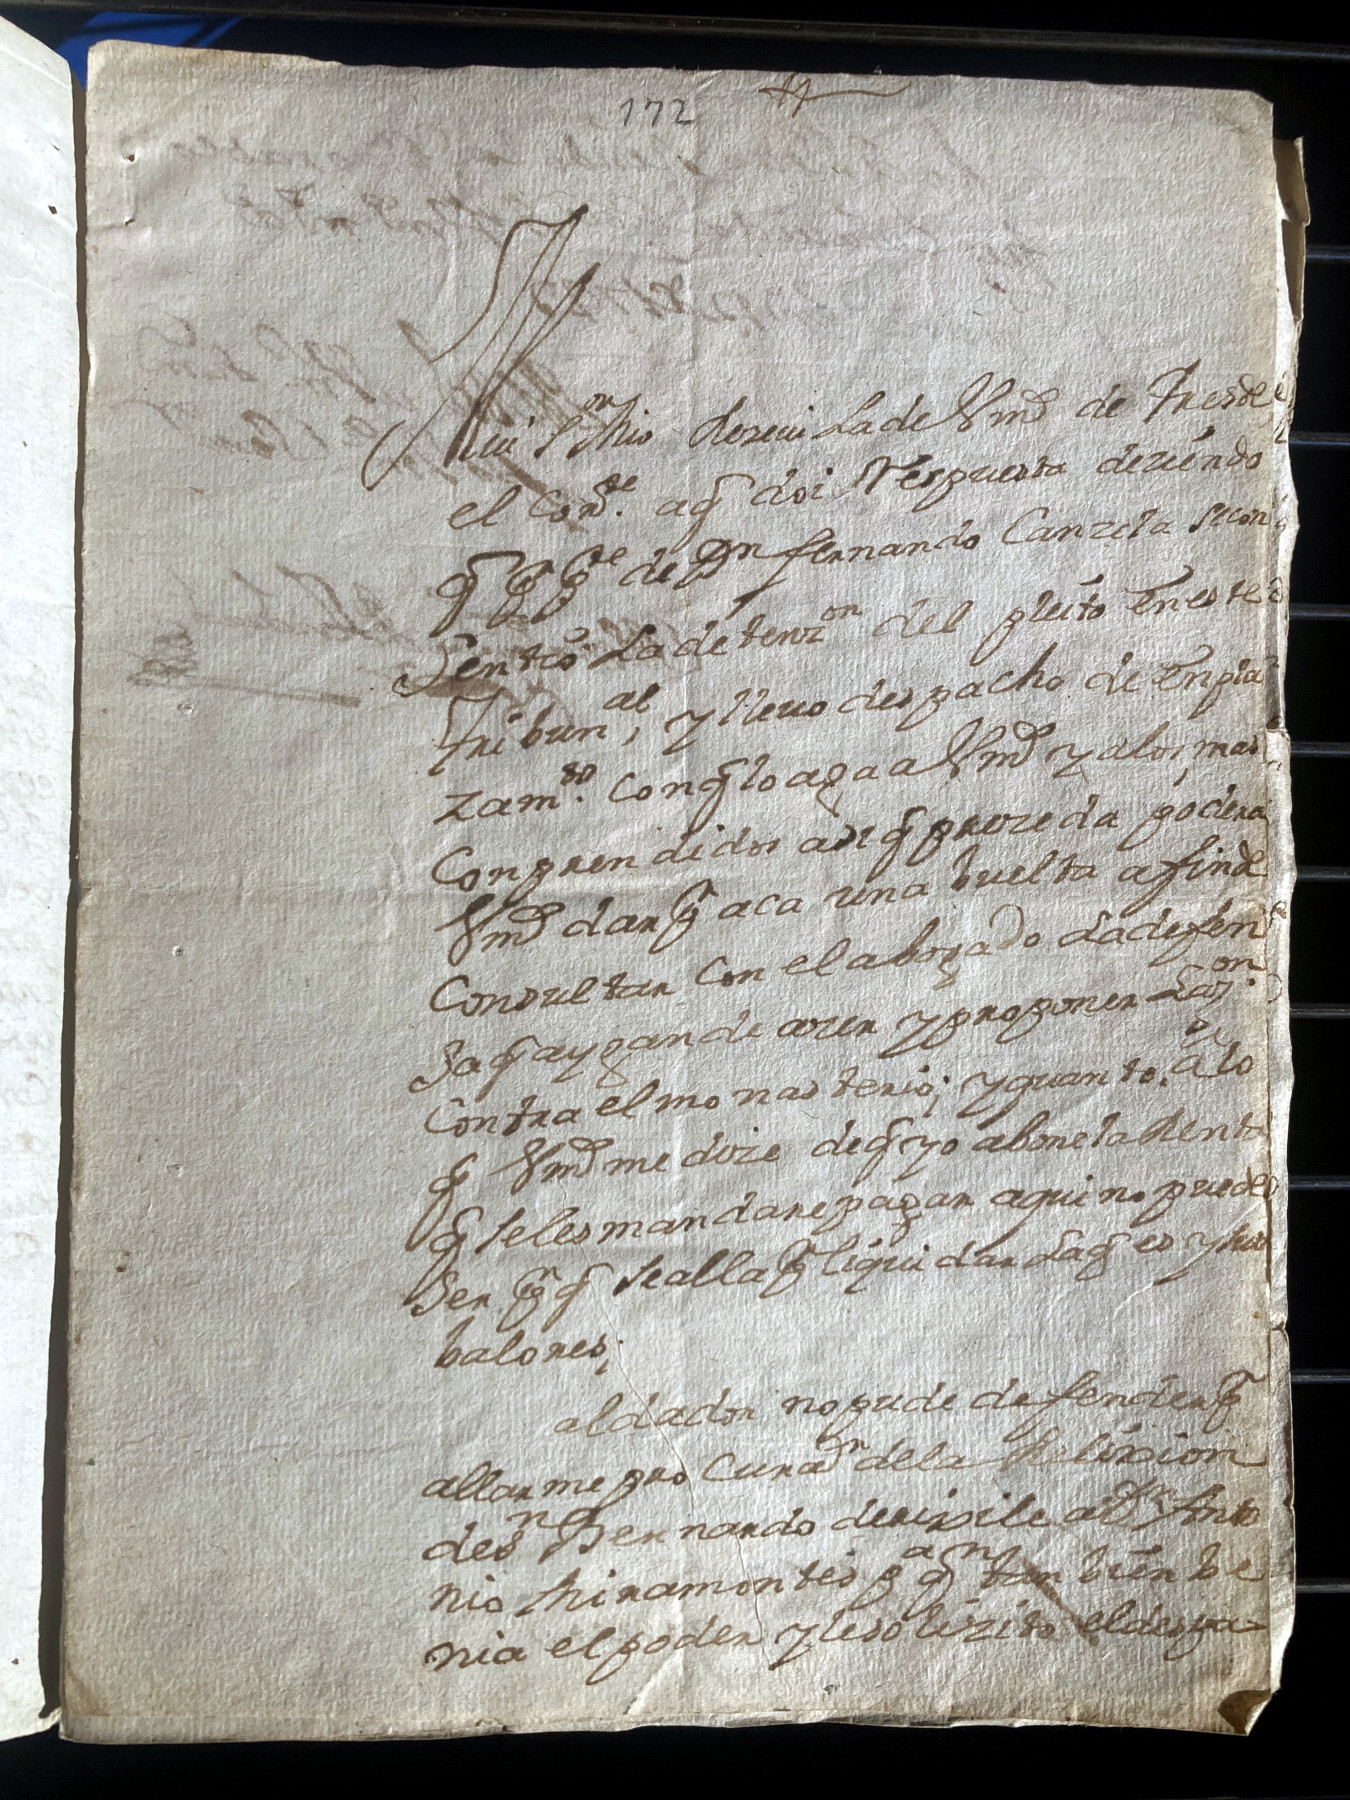 172
Mui S.or Mio Rezeui La de Vmd de Tres de
el Corr.te a q̃ doi Respuesta deziendo
q̃ por p.te de Dn fernando Canzela se con
Sentio La detenz.on del pleito En este
Tribun.al, y lleuo despacho de Enpla
zam.to con q̃ lo aga a Vmd y a los, mas
Conprendidos asi q̃ prozeda podera
Vmd dar p.r aca una buelta a fin de
Consultar con el abogado La defen
Sa q̃ aygan de azer y proponer Raz.on
contra el monasterio; y quanto. a lo
q̃ Vmd me dize de q̃ yo abone la Renta
q̃ se les mandare pagar aqui no puede
Ser p.r q̃ se alla p.r liquidar La q̃ es y sus
balores;
al dador no pude defender p.r
allarme procura.or de la Relixion
de Sn Bernardo dezirsile a Dn Anto
nio Miramontes p.a q̃ tanbien be
nia el poder y le solizito el despa-